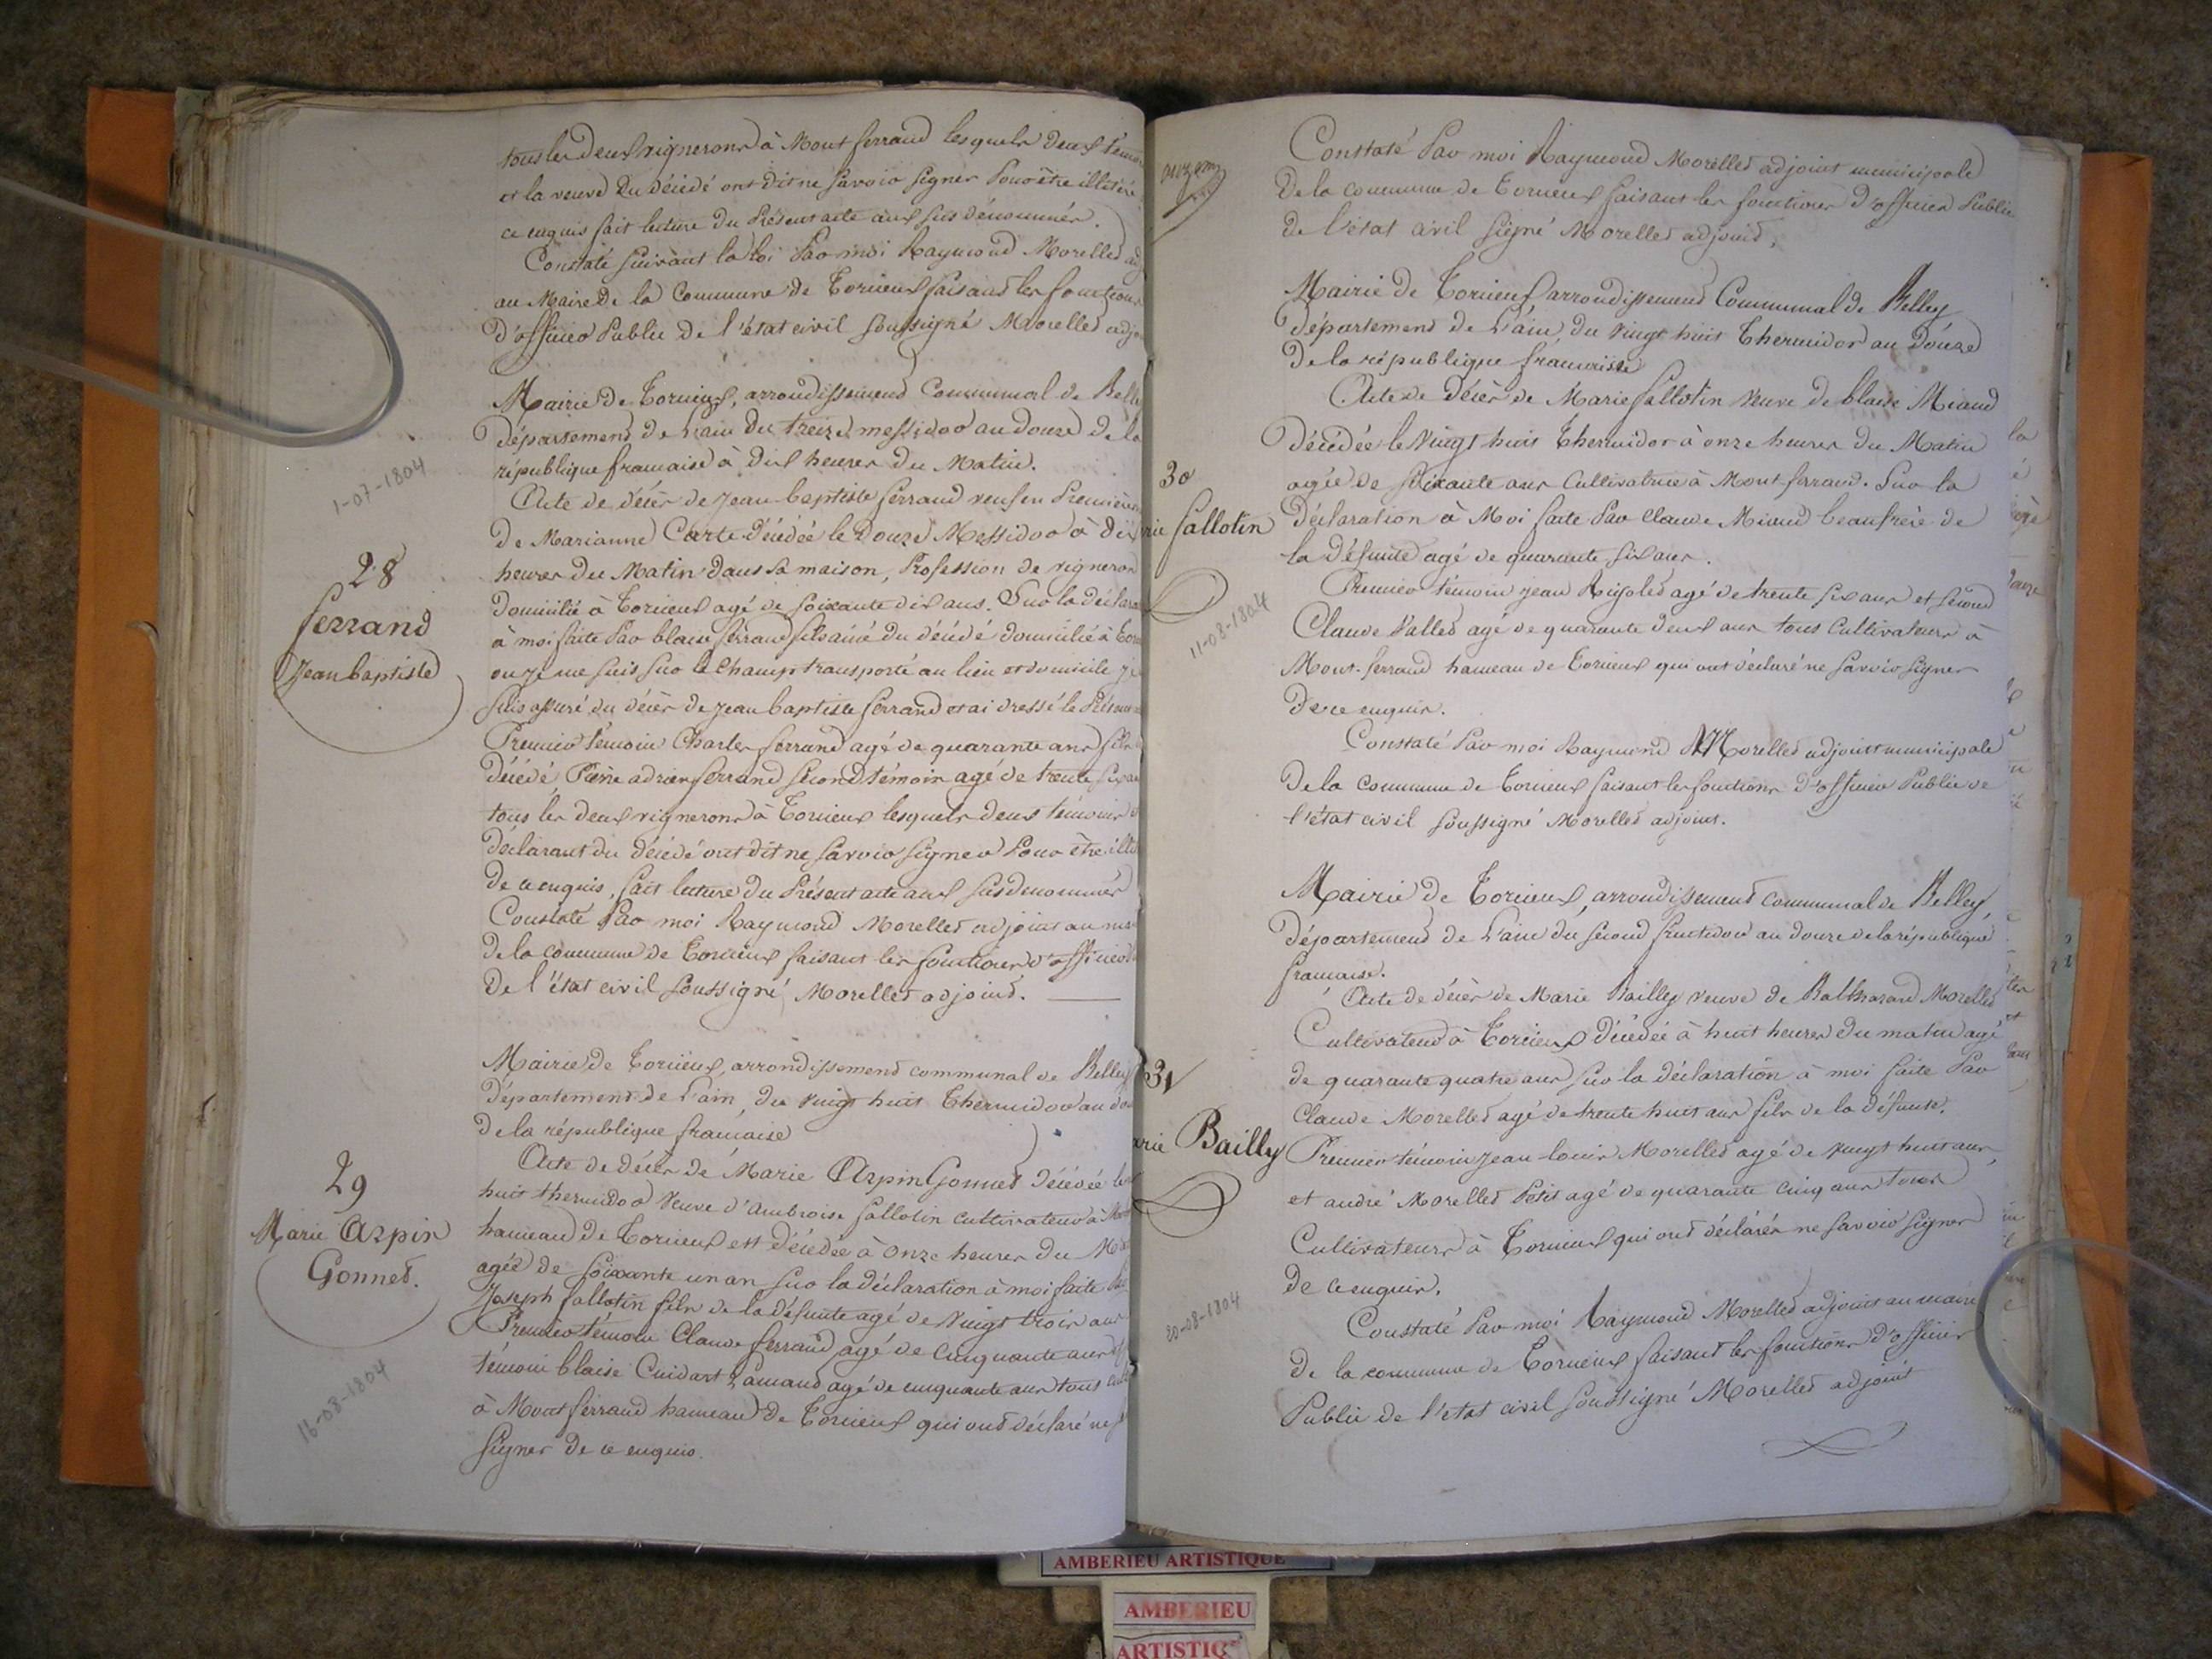 tous les deux vignerons à Mont ferrand lesquels deux témoi
et la veuve du décédé ont dit ne savoir signer pour être illitéré
ce enquis fait lecture du Présent acte aux sus dénommés.
Constaté suivant la loi Par moi Raymond Morellet adj
au Maire de la Commune de Torcieux faisant les fonctions
d'officier Public de l'état civil soussigné Morellet adjo
Mairie de Torcieux, arrondissement Communal de Belle
département de L'ain du treize messidor an douze de la
république française à dix heures du Matin.
1-07-1804
Acte de décès de Jean baptiste ferrand veuf en Première
de Marianne Carte décédée le douze Messidor à dix
28
heures du Matin dans sa maison, Profession de vigneron
ferrand
domicilié à Torcieux agé de soixante dix ans. Sur la déclara
Jean baptiste
à moi faite Par blaise ferrand fils ainé du décédé domicilié à Torc
ou je me suis sur le Champ transporté au lieu et domicile je
suis assuré du décès de Jean baptiste ferrand et ai dressé le Présent
Premier témoin Charles ferrand agé de quarante ans fils
décédé, Pierre adrien ferrand second témoin agé de trente six an
tous les deux vignerons à Torcieux lesquels deux témoins
déclarant du décédé ont dit ne savoir signer Pour être illit
de ce enquis, fait lecture du Présent acte aux susdenommés
Constaté Par moi Raymond Morellet adjoint au ma
de la commune de Torcieux faisant les fonctions d'officier
de l'état civil soussigné, Morellet adjoint.
Mairie de Torcieux, arrondissement communal de Belley
Département de L'ain, du vingt huit Thermidor an do
de la république française
29
Acte de décès de Marie Arpin Gonnet décédée le
Marie Arpin
huit thermidor veuve d'Ambroise fallotin cultivateur à Mon
Gonnet.
hameau de Torcieux est décédée à onze heures du M
agée de soixante un an sur la déclaration à moi faite
Joseph fallotin fils de la défunte agé de vingt trois ans
Premier témoin Claude ferrand agé de cinquante ans
16-08-1804
témoin blaise Cuidart Lamand agé de cinquante ans tous
à Mont ferrand hameau de Torcieux qui ont déclaré ne
signer de ce enquis.
Constaté Par moi Raymond Morellet adjoint municipale
De la commune de Torcieux faisant les fonctions d'officier Public
de l'état civil signé Morellet adjoint,
Mairie de Torcieux arrondissement Communal de Belley
département de L'ain, du vingt huit Thermidor an Douze
De la république française
Acte de décès de Marie fallotin veuve de blaise Miand
décédée le vingt huit Thermidor à onze heures du Matin
30
agée de soixante ans Cultivatrice à Mont ferrand. Sur la
rie fallotin
déclaration à Moi faite Par Claude Miand beaufrère de
la défunte agé de quarante six ans.
11-08-1804
Premier témoin jean Rigollet agé de trente six ans et second
Claude Vallet agé de quarante deux ans tous Cultivateurs à
Mont-ferrand hameau de Torcieux qui ont déclaré ne savoir signer
De ce enquis.
Constaté Par moi Raymond Morellet adjoint municipale
De la commune de Torcieux faisant les fonctions d'officier Public de
l'état civil soussigné Morellet adjoint.
Mairie de Torcieux, arrondissement communal de Belley,
Département de L'ain du second fructidor an douze de la république
française.
Acte de décès de Marie Bailly veuve de Balthazard Morellet
Cultivateur à Torcieux décédée à huit heures du matin agé
31
de quarante quatre ans sur la déclaration à moi faite Par
Claude Morellet agé de trente huit ans fils de la défunte.
rie Bailly
Premier témoin jean louis Morellet agé de vingt huit ans,
et andré Morellet Petit agé de quarante cinq ans tous
Cultivateurs à Torcieux qui ont déclarés ne savoir signer
de ce enquis.
20-08-1804
Constaté Par moi Raymond Morellet adjoint au maire
de la commune de Torcieux faisant les fonctions d'officier
Public de l'etat civil soussigné Morellet adjoint
AMBERIEU ARTISTIQUE
AMBERIEU
ARTISTIQ